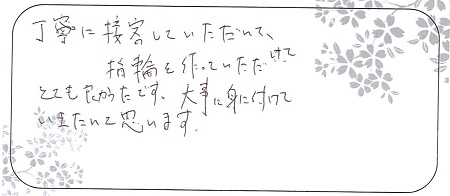 丁寧に接客していただいて、
指輪を作っていただけて
とてもよかったです。大事に身に付けて
いきたいと思います。